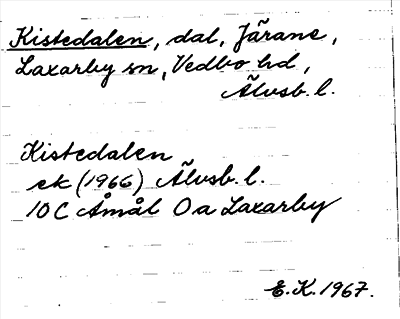 Kistedalen, dal, Järane,
Laxarby sn, Vedbo hd,
Älvsb. l.
Kistedalen
ek (1966) Älvsb. l.
10 C Åmål O a Laxarby
E.K. 1967.